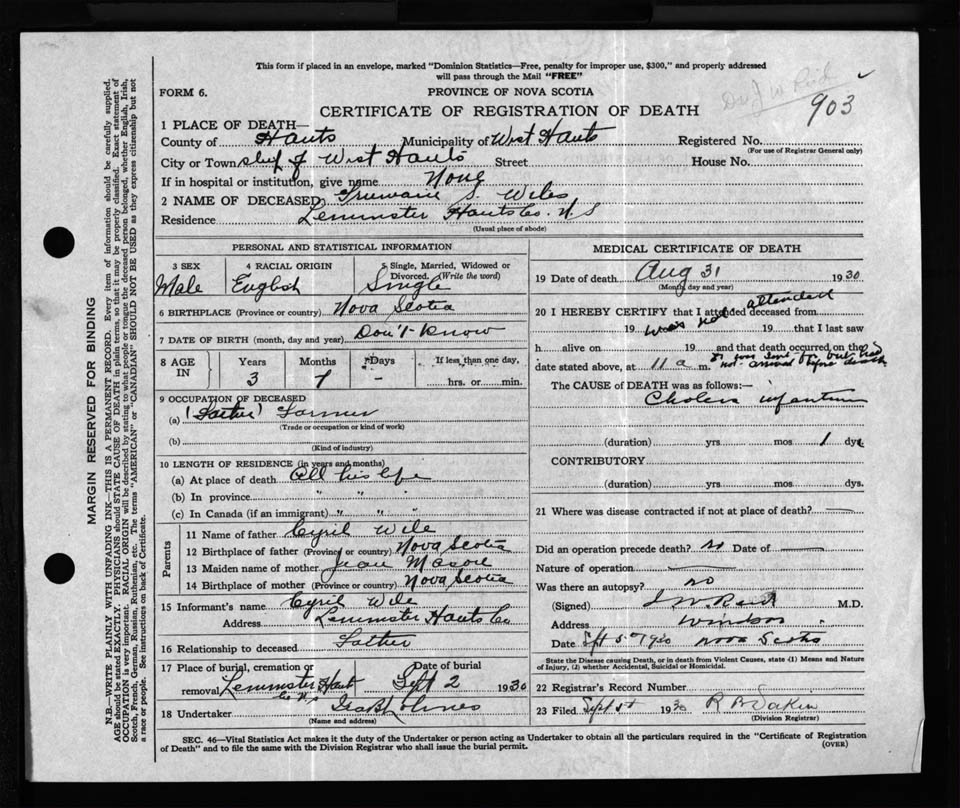 This form if placed in an envelope, marked "Dominion Statistics—Free, penalty for improper use, $300," and properly addressed
will pass through the Mail "FREE"
Dr J W Reid
903
FORM 6.
PROVINCE OF NOVA SCOTIA
CERTIFICATE OF REGISTRATION OF DEATH
1 PLACE OF DEATH—
County of Hants Municipality of West Hants Registered No.
(For use of Registrar General only)
City or Town of West Hants Street House No.
If in hospital or institution, give name None
2 NAME OF DECEASED S. Wiles
Residence Leminster Hants Co. N S
(Usual place of abode)
PERSONAL AND STATISTICAL INFORMATION
3 SEX 4 RACIAL ORIGIN 5 Single, Married, Widowed or Divorced. (Write the word)
Male English Single
6 BIRTHPLACE (Province or country) Nova Scotia
7 DATE OF BIRTH (month, day and year) Don't know
8 AGE IN Years Months Days If less than one day,
3 7 - hrs. or min.
9 OCCUPATION OF DECEASED
(a) (Father) Farmer
(Trade or occupation or kind of work)
(b)
(Kind of industry)
10 LENGTH OF RESIDENCE (in years and months)
(a) At place of death All his life
(b) In province " " "
(c) In Canada (if an immigrant) " " "
Parents
11 Name of father Cyril Wile
12 Birthplace of father (Province or country) Nova Scotia
13 Maiden name of mother Jean
14 Birthplace of mother (Province or country) Nova Scotia
15 Informant's name Cyril Wile
Address Leminster Hants Co
16 Relationship to deceased Father
17 Place of burial, cremation or removal Leminster Hants Co N.S. Date of burial Sept 2 1930
18 Undertaker
(Name and address)
MEDICAL CERTIFICATE OF DEATH
19 Date of death Aug 31 1930
(Month, day and year)
20 I HEREBY CERTIFY that I attended deceased from
was not attended
19 19 that I last saw
h alive on 19 and that death occurred, on the
date stated above, at 11 a m.
not arrived before death
The CAUSE OF DEATH was as follows:—
Cholera infantum
(duration) yrs. mos. 1 dys.
CONTRIBUTORY
(duration) yrs. mos. dys.
21 Where was disease contracted if not at place of death? —
Did an operation precede death? no Date of —
Nature of operation —
Was there an autopsy? no
(Signed) J W Reid M.D.
Address Windsor
Date Sept 5th 1930 Nova Scotia
State the Disease causing Death, or in death from Violent Causes, state (1) Means and Nature
of Injury, (2) whether Accidental, Suicidal or Homicidal.
22 Registrar's Record Number
23 Filed Sept 5th 1930
(Division Registrar)
SEC. 46—Vital Statistics Act makes it the duty of the Undertaker or person acting as Undertaker to obtain all the particulars required in the "Certificate of Registration
of Death" and to file the same with the Division Registrar who shall issue the burial permit.
(OVER)
MARGIN RESERVED FOR BINDING
N.B.—WRITE PLAINLY WITH UNFADING INK—THIS IS A PERMANENT RECORD. Every item of information should be carefully supplied.
AGE should be stated EXACTLY. PHYSICIANS should STATE CAUSE OF DEATH in plain terms, so that it may be properly classified. Exact statement of
OCCUPATION is very important. RACIAL ORIGIN will be described by stating to what people or tongue the deceased person belonged, whether English, Irish,
Scotch, French, German, Russian, Ruthenian, etc. The terms "AMERICAN" or "CANADIAN" SHOULD NOT BE USED as they express citizenship but not
a race or people. See instructions on back of Certificate.